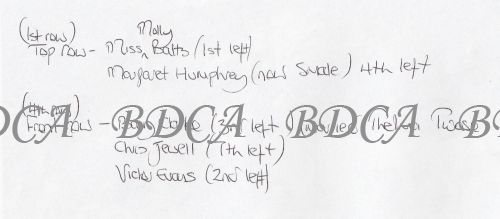 (1st row) Molly
Top Row - Miss ^ Batts (1st left)
Margaret Humphrey (now Swade) 4th left
Front row - (3rd left
Chris Jewell (7th left)
Vicky Evans (2nd left)
BDCA BDCA BDCA B